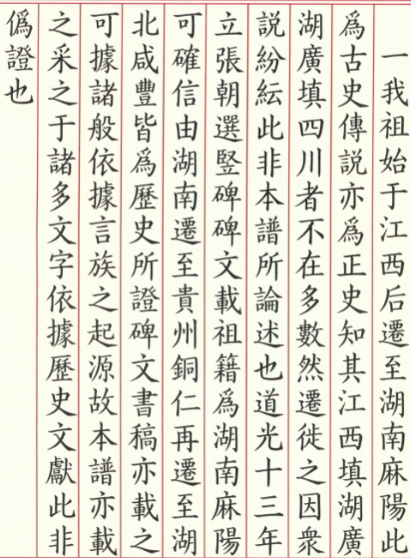 一我祖始于江西后遷至湖南麻陽此
為古史傳説亦為正史知其江西填湖廣
湖廣填四川者不在多數然遷徙之因衆
説紛紜此非本譜所論述也道光十三年
立張朝選竪碑碑文載祖籍為湖南麻陽
可確信由湖南遷至貴州銅仁再遷至湖
北咸豐皆為歷史所證碑文書稿亦載之
可據諸般依據言族之起源故本譜亦載
之采之于諸多文字依據歷史文獻此非
僞證也